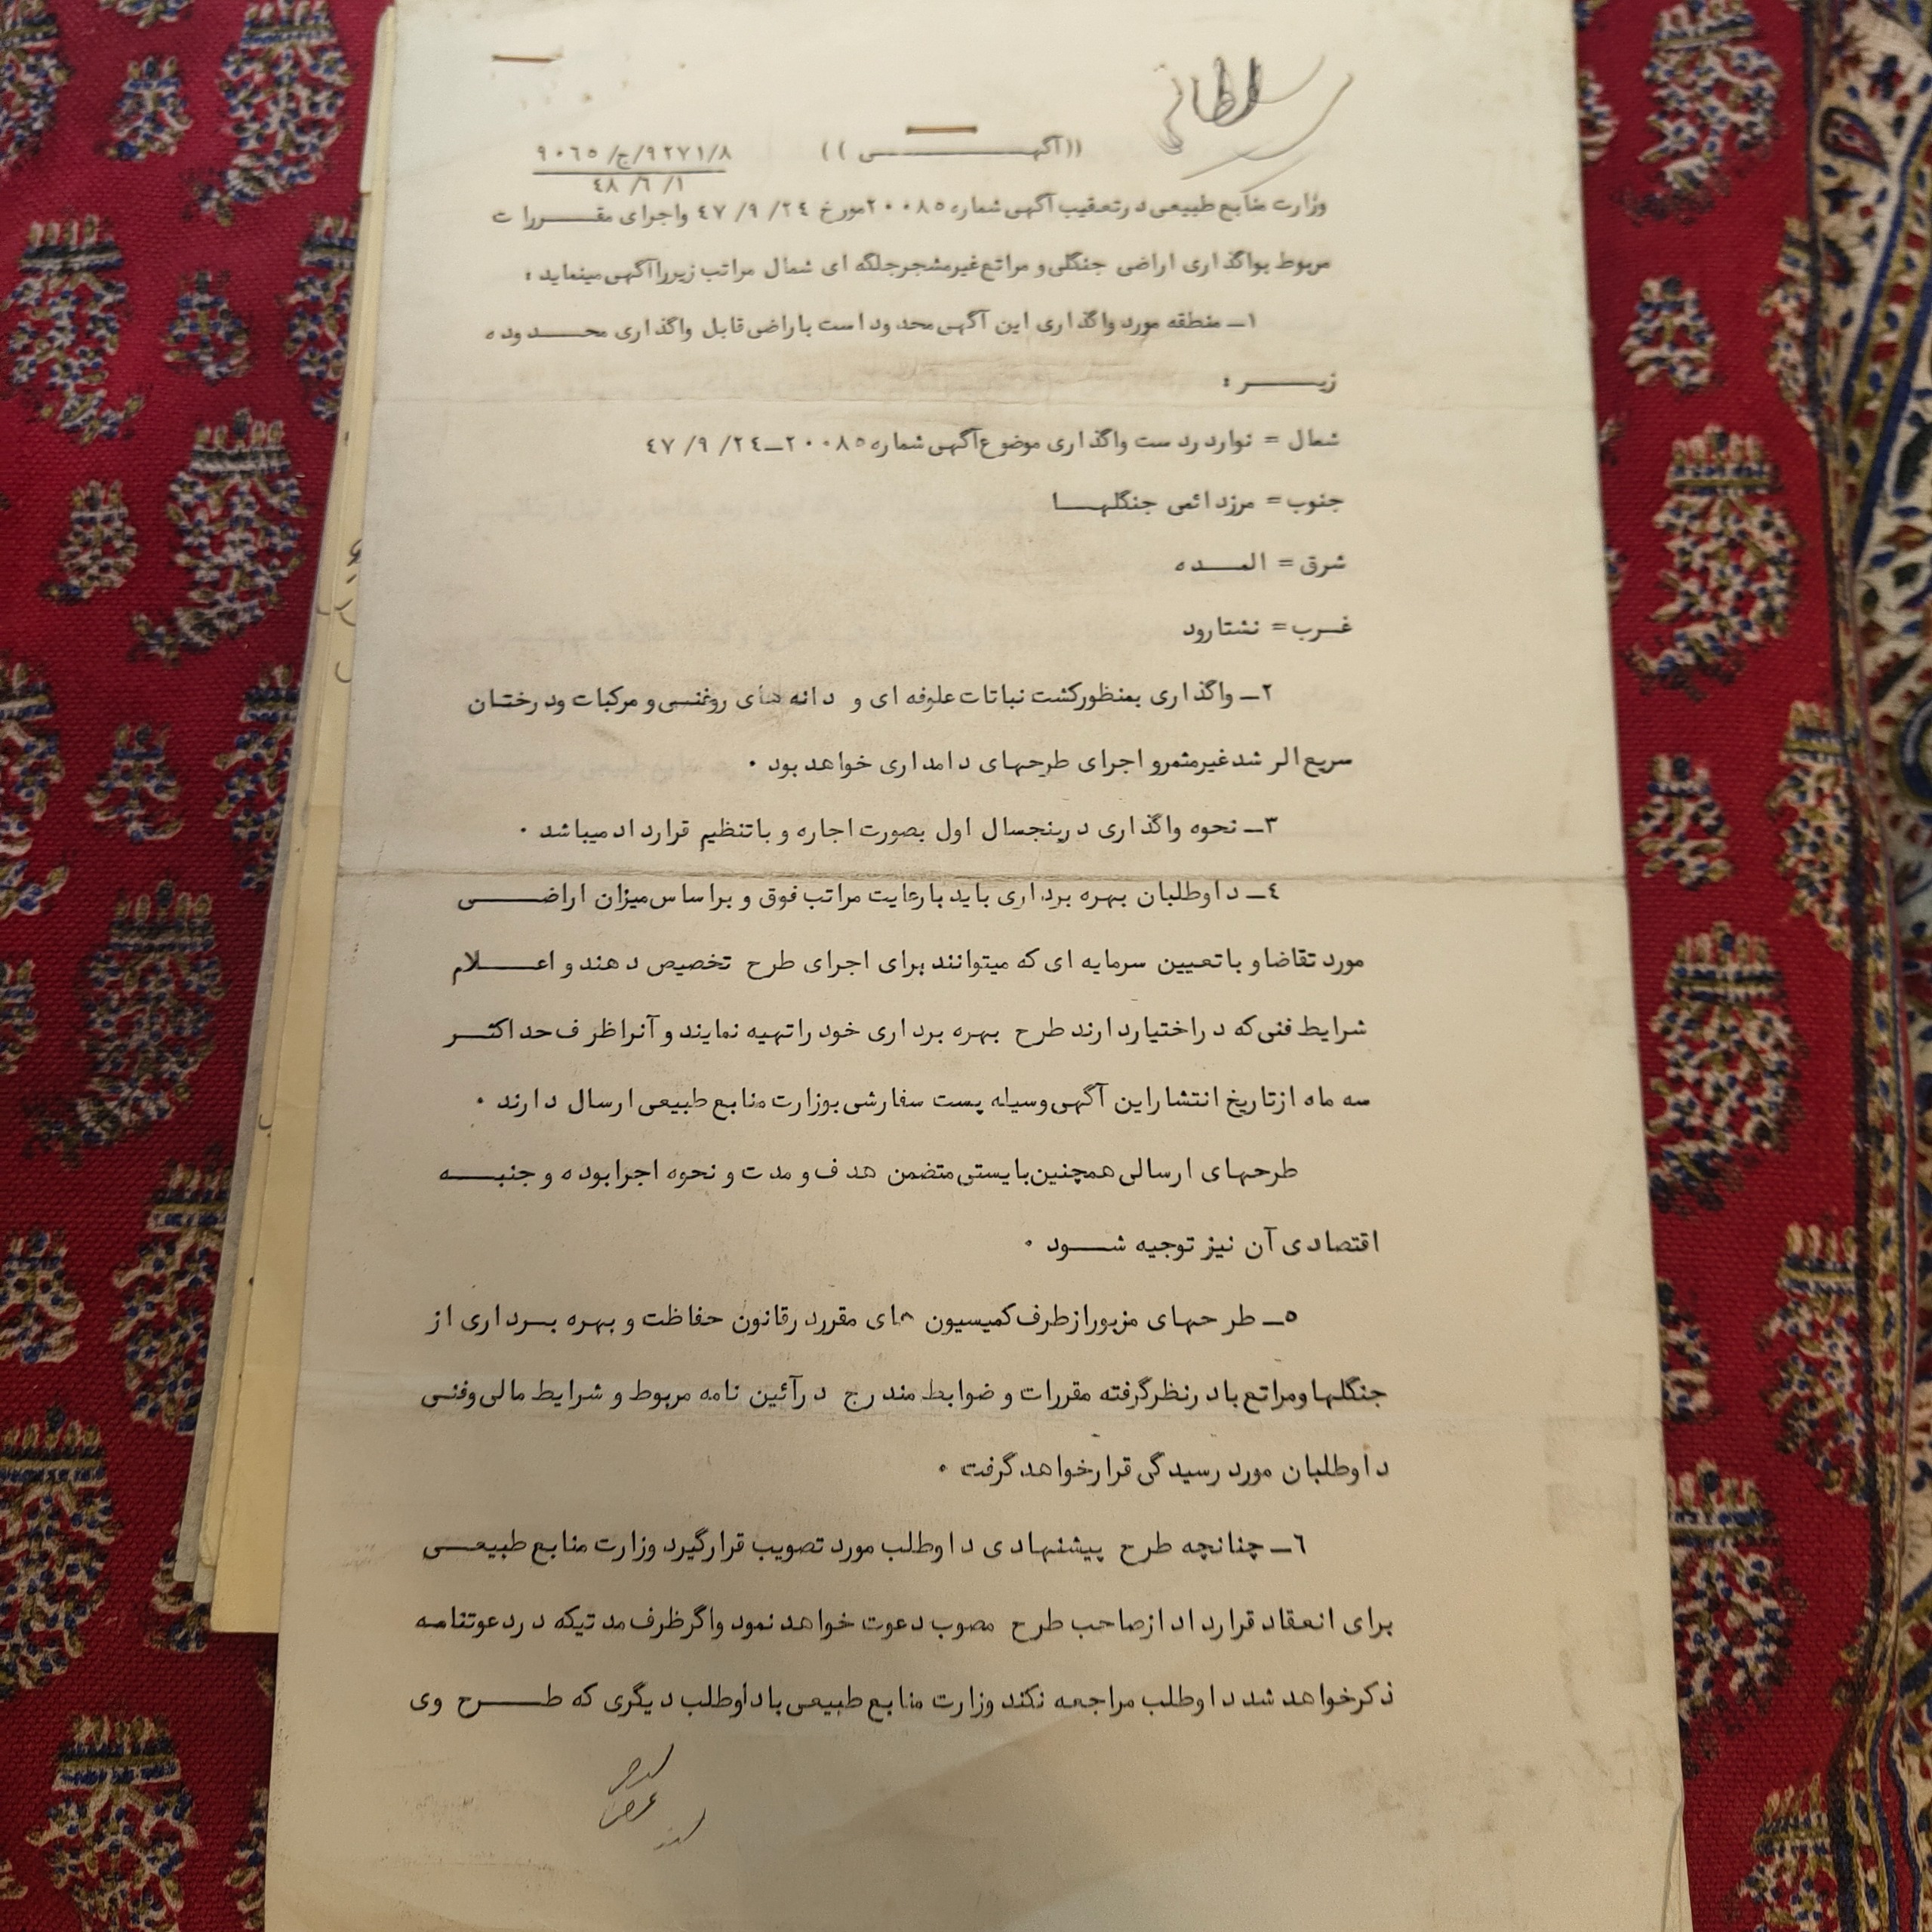 سلطانی
((آگهـــــــــی ))
۹۰٦٥ /ج/۹۲۷۱/۸
٤۸ /٦ /۱
وزارت منابع طبیعی در تعقیب آگهی شماره ۲۰۰۸٥ مورخ ۲٤/ ۹/ ٤۷ واجرای مقـــررات
مربوط بواگذاری اراضی جنگلی و مراتع غیرمشجر جلگه ای شمال مراتب زیر را آگهی مینماید :
۱ــ منطقه مورد واگذاری این آگهی محدود است باراضی قابل واگذاری محـــدوده
زیـــــر :
شمال = نوار در دست واگذاری موضوع آگهی شماره ۲۰۰۸٥ــ۲٤/ ۹/ ٤۷
جنوب = مرز دائمی جنگلهـــا
شرق = المـــده
غــرب = نشتارود
۲ــ واگذاری بمنظور کشت نباتات علوفه ای و دانه های روغنــی و مرکبات و درختان
سریع الرشد غیرمثمر و اجرای طرحهای دامداری خواهد بود ۰
۳ــ نحوه واگذاری در پنجسال اول بصورت اجاره و با تنظیم قرارداد میباشد ۰
٤ــ داوطلبان بهره برداری باید بارعایت مراتب فوق و براساس میزان اراضــــی
مورد تقاضا و با تعیین سرمایه ای که میتوانند برای اجرای طرح تخصیص دهند و اعــــلام
شرایط فنی که در اختیار دارند طرح بهره برداری خود را تهیه نمایند و آنرا ظرف حداکثـــر
سه ماه از تاریخ انتشار این آگهی وسیله پست سفارشی بوزارت منابع طبیعی ارسال دارند ۰
طرحهای ارسالی همچنین بایستی متضمن هدف و مدت و نحوه اجرا بوده و جنبـــه
اقتصادی آن نیز توجیه شـــود ۰
٥ــ طرحهای مزبور از طرف کمیسیون های مقرر در قانون حفاظت و بهره بــرداری از
جنگلها و مراتع با در نظر گرفته مقررات و ضوابط مندرج در آئین نامه مربوط و شرایط مالی وفنــی
داوطلبان مورد رسیدگی قرار خواهد گرفت ۰
٦ــ چنانچه طرح پیشنهادی داوطلب مورد تصویب قرار گیرد وزارت منابع طبیعـــی
برای انعقاد قرارداد از صاحب طرح مصوب دعوت خواهد نمود واگر ظرف مدتیکه در دعوتنامــه
ذکر خواهد شد داوطلب مراجعه نکند وزارت منابع طبیعی با داوطلب دیگری که طــــرح وی